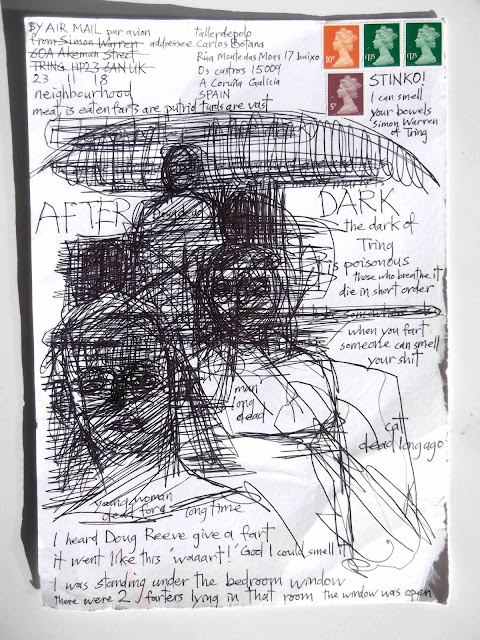 BY AIR MAIL par avion
from Simon Warren
60A Akeman Street
TRING HP23 6AN UK
23 11 18
neighbourhood
meat is eaten farts are putrid turds are vast
tallerdepolo
addressee Carlos Botana
Rúa Monte das Moas 17 baixo
Os castros 15009
A Coruña Galicia
SPAIN
10P
1st
1st
5P
STINKO!
I can smell
your bowels
Simon Warren
of Tring
AFTER
DARK
the dark of
Tring
is poisonous
those who breathe it
die in short order
when you fart
someone can smell
your shit
man
long
dead
cat
dead long ago
young woman
dead for a long time
I heard Doug Reeve give a fart
it went like this 'waaart!' God I could smell it
I was standing under the bedroom window
there were 2 farters lying in that room the window was open